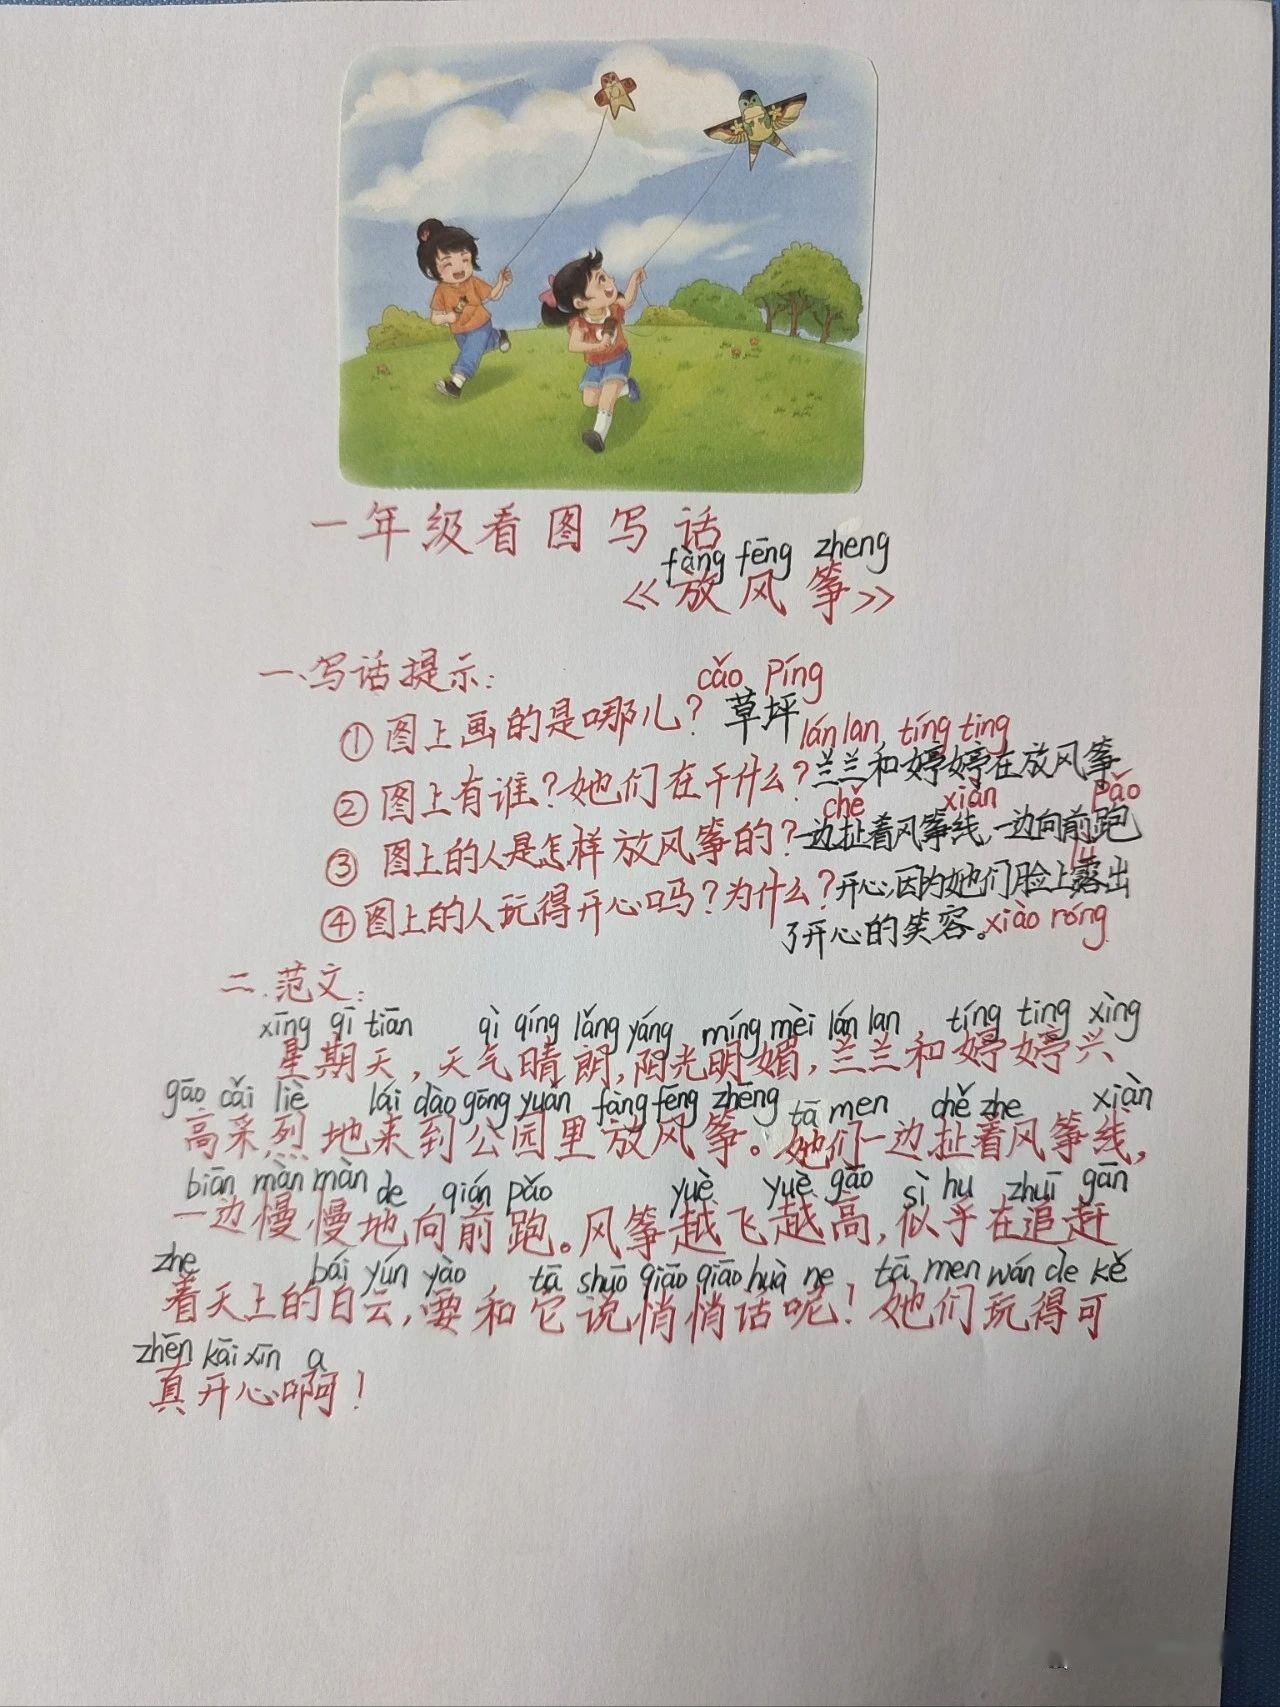 一年级看图写话
fàng fēng zheng
《放风筝》
一、写话提示:
cǎo píng
①图上画的是哪儿?草坪
lán lan tíng ting
②图上有谁?她们在干什么?兰兰和婷婷在放风筝
chě xiàn pǎo
③图上的人是怎样放风筝的?一边扯着风筝线,一边向前跑
lù
④图上的人玩得开心吗?为什么?开心,因为她们脸上露出
了开心的笑容。xiào róng
二、范文:
xīng qī tiān qì qíng lǎng yáng míng mèi lán lan tíng ting xìng
星期天,天气晴朗,阳光明媚,兰兰和婷婷兴
gāo cǎi liè lái dào gōng yuán fàng fēng zhēng tā men chě zhe xiàn
高采烈地来到公园里放风筝。她们一边扯着风筝线,
biān màn màn de qián pǎo yuè yuè gāo sì hu zhuī gǎn
一边慢慢地向前跑。风筝越飞越高,似乎在追赶
zhe bái yún yào tā shuō qiāo qiāo huà ne tā men wán dè kě
着天上的白云,要和它说悄悄话呢!她们玩得可
zhēn kāi xīn a
真开心啊!